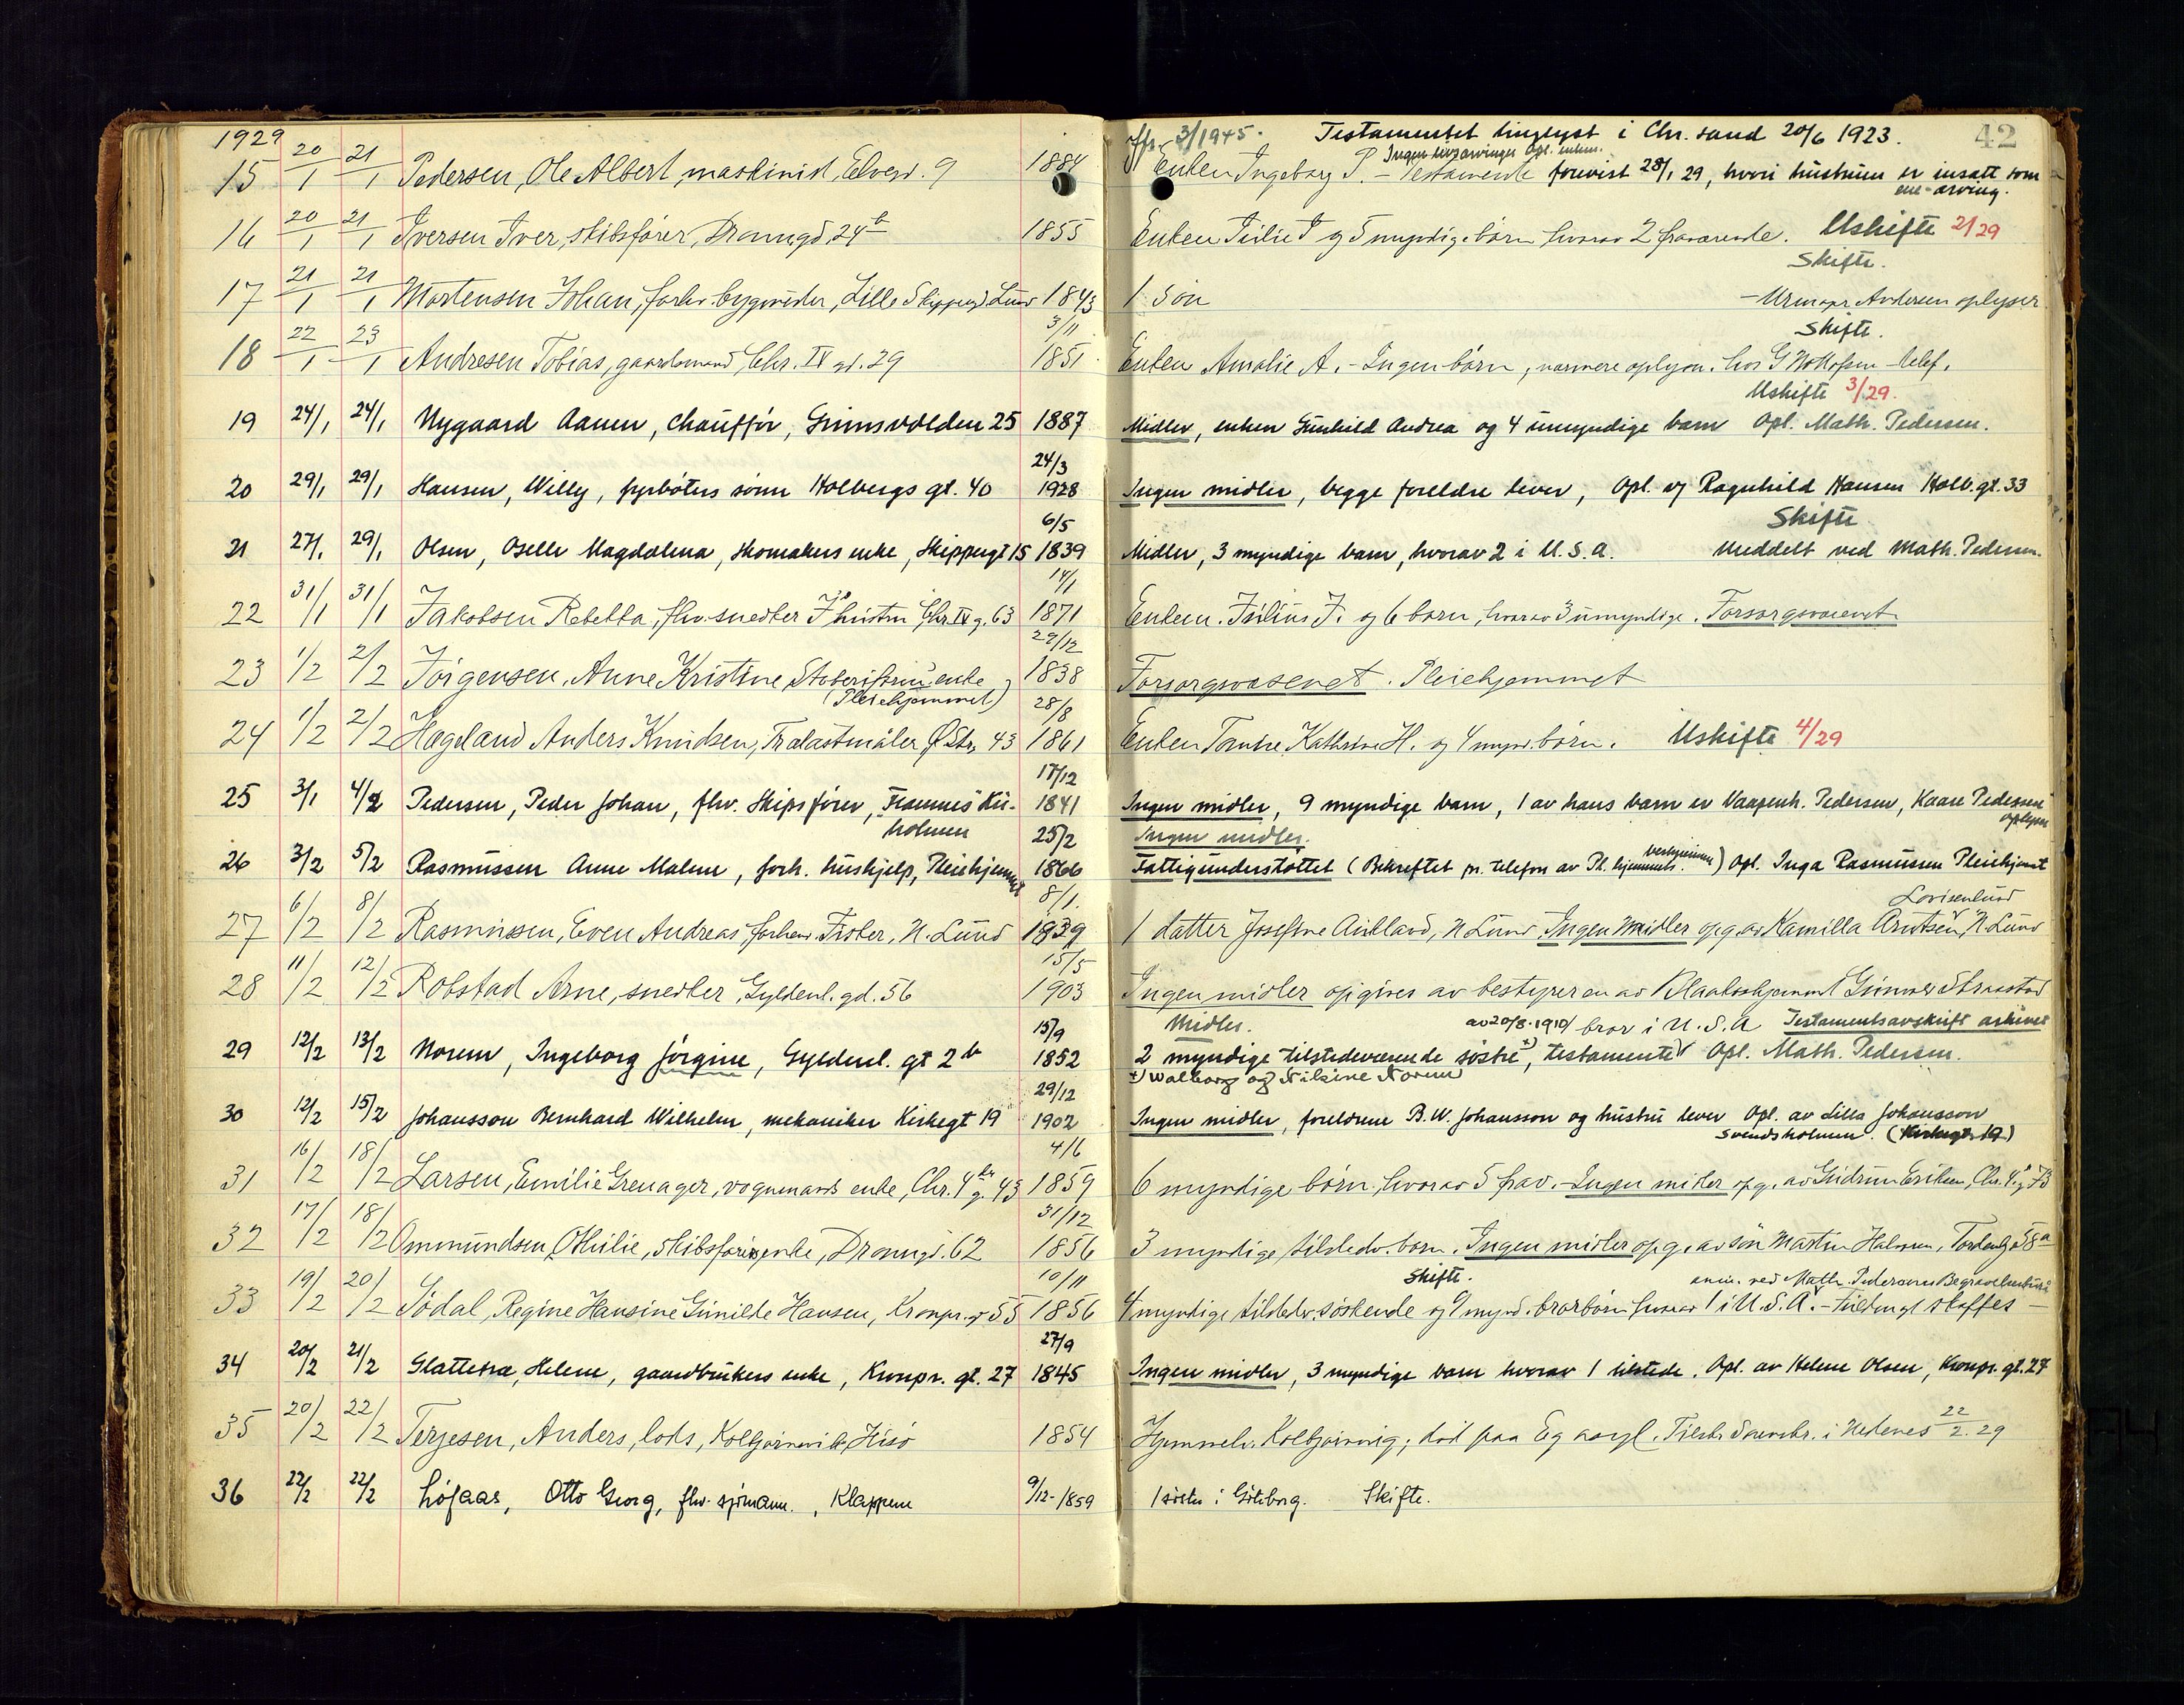 1929
15 20/1 21/1 Pedersen, Ole Albert, maskinist, Elvegd. 9 1884
16 20/1 21/1 Iversen Iver, skibsfører, Dronnsgd. 24b 1855
17 21/1 21/1 Mortensen Johan, forhv. bygmester, Lille Skippergd. Lund 1843
3/11
18 22/1 23/1 Andresen Tobias, gaardsmand, Chr. IV gd. 29 1851
19 24/1 24/1 Nygaard Aanen, chauffør, Grimsvolden 25 1887
24/3
20 29/1 29/1 Hansen, Willy, fyrbøters sønn Holbergs gt. 40 1928
6/5
21 27/1 29/1 Olsen, Oselle Magdalena, skomakers enke, Skippergt 15 1839
14/1
22 31/1 31/1 Jakobsen Rebekka, fhv. snedker J's hustru Chr. IV g. 63 1871
29/12
23 1/2 2/2 Jörgensen, Anne Kristine, enke 1838
(Pleiehjemmet)
28/8
24 1/2 2/2 Hageland Anders Knudsen, Tralastmåler Ø. Str. 43 1861
17/12
25 3/1 4/2 Pedersen, Peder Johan, fhv. Skipsfører, Frammes Ku- 1841
holmen
25/2
26 3/2 5/2 Rasmussen Anne Malene, forh. hushjelp, Pleiehjemmet 1866
8/1
27 6/2 8/2 Rasmussen, Even Andreas, forhenv. Fisker, N. Lund 1839
15/5
28 11/2 12/2 Robstad Arne, snedker, Gyldenl. gd. 56 1903
15/9
29 12/2 13/2 Norem, Ingeborg Jörgine, Gyldenl. gt 2b 1852
29/12
30 12/2 15/2 Johansson Bernhard Wilhelm, mekaniker Kirkegt 19 1902
4/6
31 16/2 18/2 Larsen, Emilie Grenager, vognmands enke, Chr. 4des g. 43 1859
31/12
32 17/2 18/2 Ommundsen, Othilie, skibsførerenke, Dronngd. 62 1856
10/11
33 19/2 20/2 Södal, Regine Hansine Gunilde Hansen, Kronpr. g 55 1856
27/9
34 20/2 21/2 Slattetræ, Helene, gaardbrukers enke, Kronpr. gt. 27 1845
35 20/2 22/2 Terjesen, Anders, lods, Kolbjørnsvik, Hisö 1854
36 22/2 22/2 Löfaas, Otto Georg, fhv. sjömann, Klappene 9/12-1859
Jfr. 3/1945. Testamentet tinglyst i Chr. sand 20/6 1923. 42
Ingen livsarvinger Opl. enken.
Enken Ingeborg P. – Testamente forevist 28/1 29, hvori hustruen er insatt som
ene-arving.
Enken Julie I og 5 myndige børn hvorav 2 fraværende. Uskifte 2/29
Skifte.
1 sön – Urmapr. Andersen oplyser
Skifte.
Enken Amalie A. – Ingen børn, nærmere oplysn. hos telef.
Uskifte 3/29.
Midler, enken Gunhild Andrea og 4 umyndige barn Opl. Math. Pedersen.
Ingen midler, begge foreldre lever, Opl. af Ragnhild Hansen Holb. gt. 33
Skifte
Midler, 3 myndige barn, hvorav 2 i U.S.A. Meddelt ved Math. Pedersen.
Enkem. Julius J. og 6 barn, hvorav 3 umyndige. Forsorgsvæsenet
Forsorgsvæsenet. Pleiehjemmet
Enken Tomine Kathrine H. og 4 mynd. børn. Uskifte 4/29
Ingen midler, 9 myndige barn, 1 av hans barn er Vaapenh. Pedersen, Kaare Pedersen
oplyser
Ingen midler.
Fattigunderstöttet (Bekreftet pr. telefon av Pl. hjemmets bestyrerinne) Opl. Inga Rasmussen Pleiehjemt
Lovisenlund
1 datter Josefine Aukland, N Lund, Ingen midler opg. av Kamilla Arntsen, N. Lund
Ingen midler opgives av bestyreren av Blaakorshjemmet Gunnar Straastad
Midler. av 20/8. 1910 bror i U.S.A Testamentsavskrift arkivet
2 myndige tilstedeværende søstre +), testamente Opl. Math. Pedersen.
+) Walborg og Nilsine Norem
Ingen midler, foreldrene B.W. Johansson og hustru lever Opl. av Lilla Johansson
Svendsholmen. (Kirkegt 19)
6 myndige börn, hvorav 5 frav. – Ingen midler opg. av Gudrun Eriksen, Chr. 4.g 73
3 myndige tilstedv. born. Ingen midler opg. av sön Martin Halvorsen, Tordenskg. 58a
Skifte. anm. ved Math. Pedersens Begravelsesbureau
4 myndige tilstedev. söskende og 9 mynd. brorbörn hvorav 1 i U.S.A. – skaffes –
Ingen midler, 3 myndige barn hvorav 1 tilstede. Opl. av Helene Olsen, Kronpr. gt. 27
Hjemmeh. Kolbjörnsvig; död paa Eg asyl. Tilsk. Sorenskr. i Nedenes 22/2. 29
1 söster i Göteborg. Skifte.